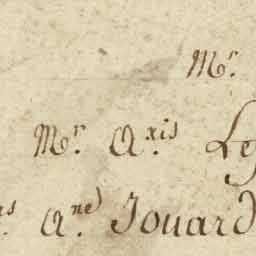 Mr.
Mr. A.xis Le
as. A.ne Jouard